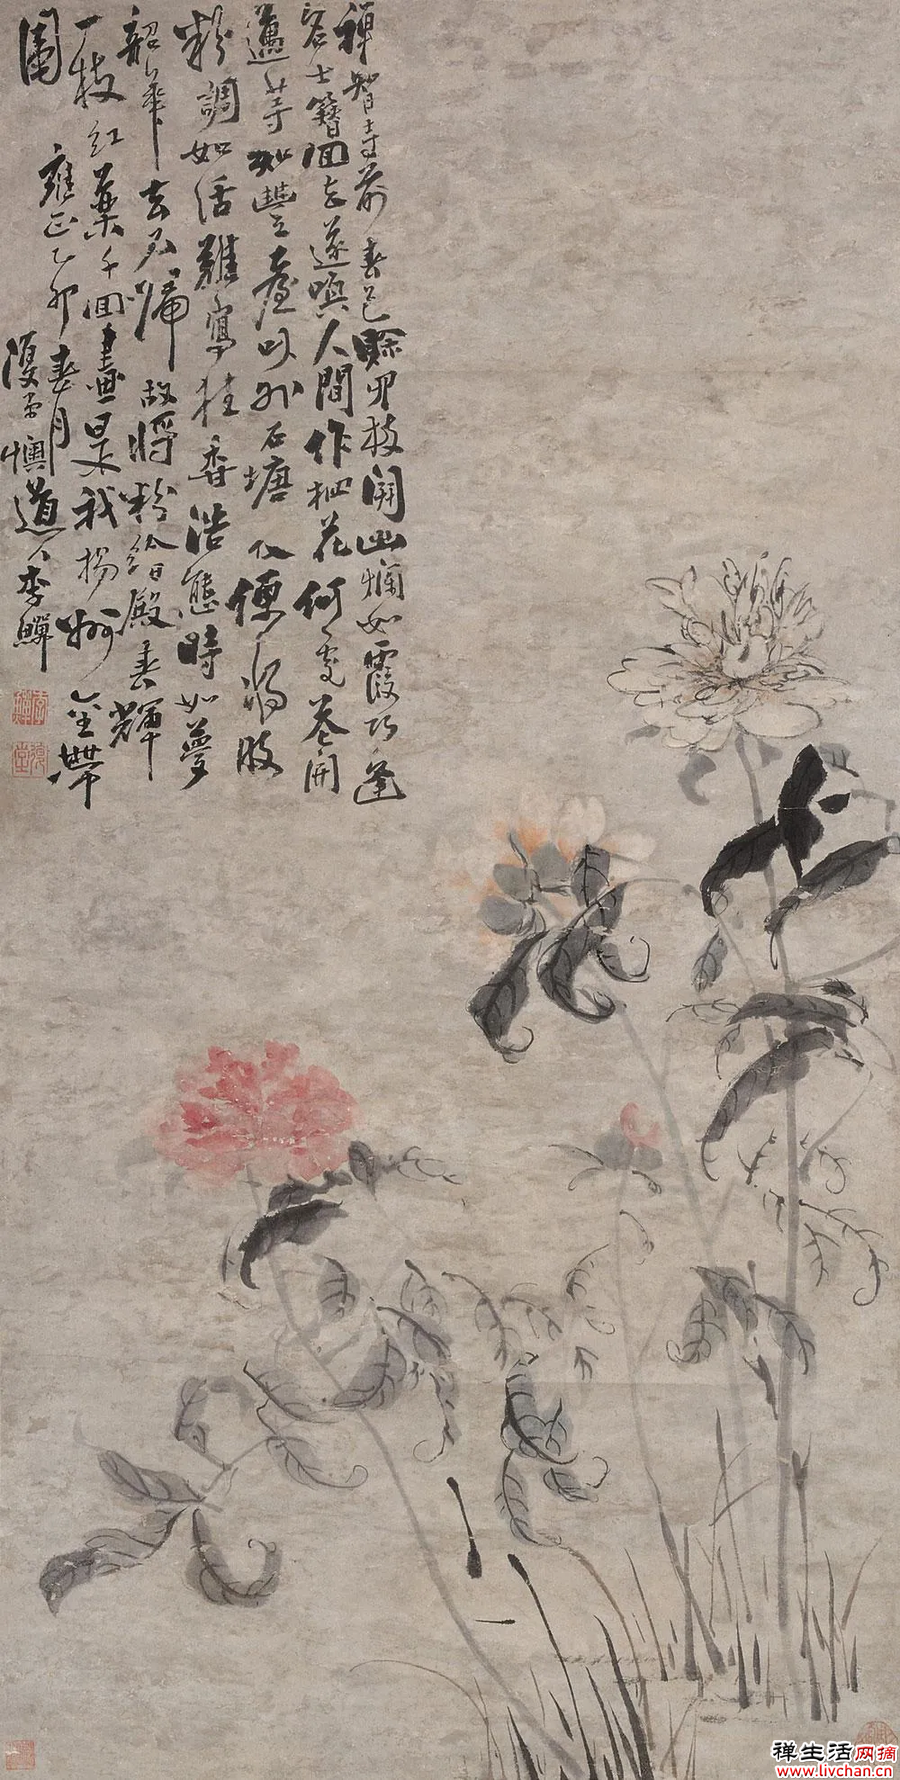 禪智寺前春已賒四枝開出爛如霞巧逢
名士簪回去遂喚人間作相花何處花開
等如豐臺以外石塘便為肢
粉調如活難寫桂香浩態時如夢
韶華去不歸故將粉繪殿春輝
一枝紅藥千回畫是我揚州金帶
圍 雍正乙卯春月
復堂懊道人李鱓
禅生活网摘
www.livchan.cn